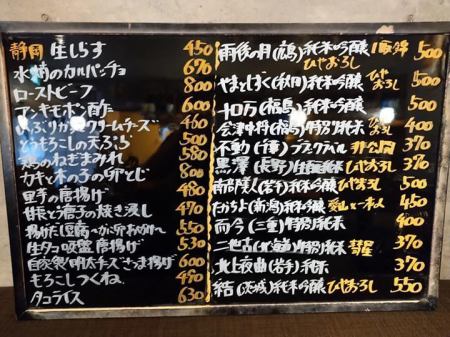 静岡 生しらす 450
水蛸のカルパッチョ 670
ローストビーフ 800
アンキモポン酢 600
いぶりがっこクリームチーズ 460
とうもろこしの天ぷら 500
鶏のねぎまみれ 580
カキと木の子の卵とじ 800
里芋の唐揚げ 480
甘長と茄子の煮浸し 470
揚げだし豆腐 550
生タコ吸盤唐揚げ 530
自家製明太チーズさつま揚げ 600
もろこしつくね 500
タコライス 630
雨後の月(広島)純米吟醸 ひやおろし 500
やまとしずく(秋田)純米吟醸 ひやおろし 500
十ロ万(福島)純米吟醸 500
会津中将(福島)特別純米 ひやおろし 400
不動(千葉) 非公開 370
黒澤(長野)生酛純米 ひやおろし 370
南部美人(岩手)純米吟醸 ひやおろし 500
たかちよ(新潟)純米吟醸 450
而今(三重)特別純米 400
二世古(北海道)特別純米 彗星 370
北上夜曲(岩手)純米 370
結(茨城)純米吟醸 ひやおろし 550